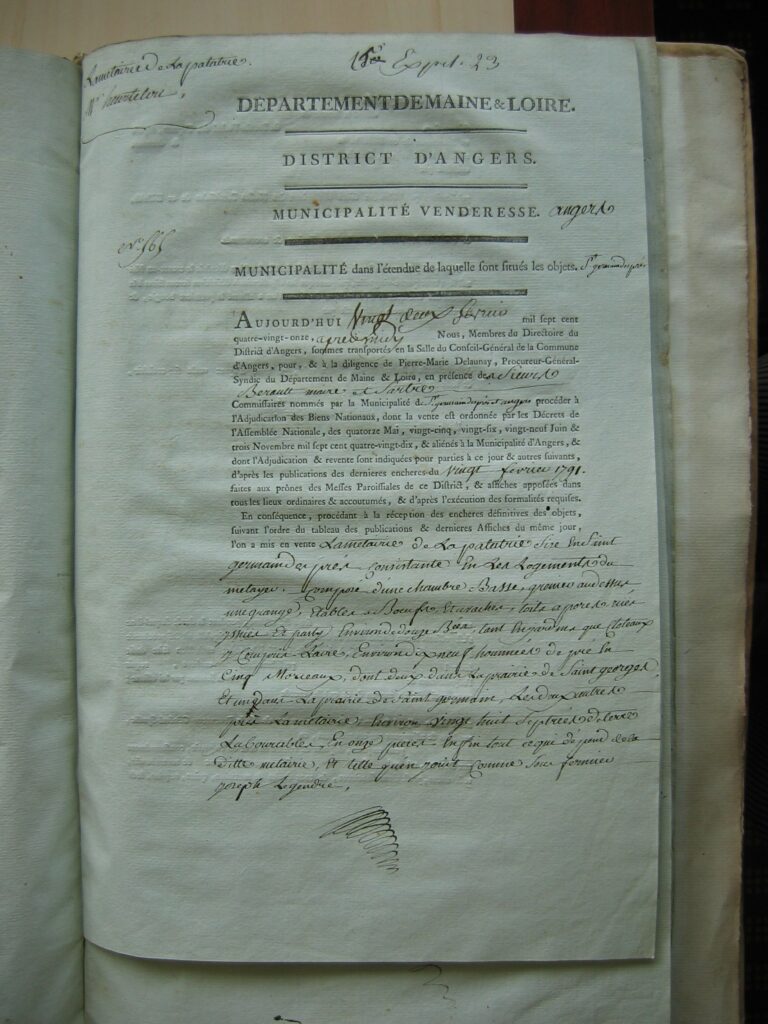 Lametairie de Lapatatrie.
15e Expt. 23
DÉPARTEMENT DE MAINE & LOIRE.
DISTRICT D'ANGERS.
MUNICIPALITÉ VENDERESSE. angers
MUNICIPALITÉ dans l'étendue de laquelle sont situés les objets. St germain des prés
AUJOURD'HUI Vingt deux fevrier mil sept cent
quatre-vingt-onze, apres midy Nous, Membres du Directoire du
District d'Angers, sommes transportés en la Salle du Conseil-Général de la Commune
d'Angers, pour, & à la diligence de Pierre-Marie Delaunay, Procureur-Général-
Syndic du Département de Maine & Loire, en présence de sieurs
Berault maire et Sartre
Commissaires nommés par la Municipalité de St germain des prés et angers procéder à
l'Adjudication des Biens Nationaux, dont la vente est ordonnée par les Décrets de
l'Assemblée Nationale, des quatorze Mai, vingt-cinq, vingt-six, vingt-neuf Juin &
trois Novembre mil sept cent quatre-vingt-dix, & aliénés à la Municipalité d'Angers, &
dont l'Adjudication & revente sont indiquées pour parties à ce jour & autres suivants,
d'après les publications des dernieres encheres du vingt fevrier 1791.
faites aux prônes des Messes Paroissiales de ce District, & affiches apposées dans
tous les lieux ordinaires & accoutumés, & d'après l'exécution des formalités requises.
En conséquence, procédant à la réception des encheres définitives des objets,
suivant l'ordre du tableau des publications & dernieres Affiches du même jour,
l'on a mis en vente Lametairie de Lapatatrie size en Saint
germain des prés consistante en Les Logements du
metayer, composé d'une chambre Basse, grenier au dessus
une grange, Etables a Boeufs et vaches, toits a porcs, ruës
yssües Et
y Compris Laire, Environ dix neuf hommées de pré en
Cinq Morceaux, dont deux dans Laprairie de Saint georges
Et un dans Laprairie de Saint germain, Les deux autres
près Lametairie, Environ vingt huit Septrées de terre
Labourables, En onze pieces Enfin tout ce qui dépend de la
ditte metairie, Et telle qu'en jouit comme Sous fermier
joseph Legendre.